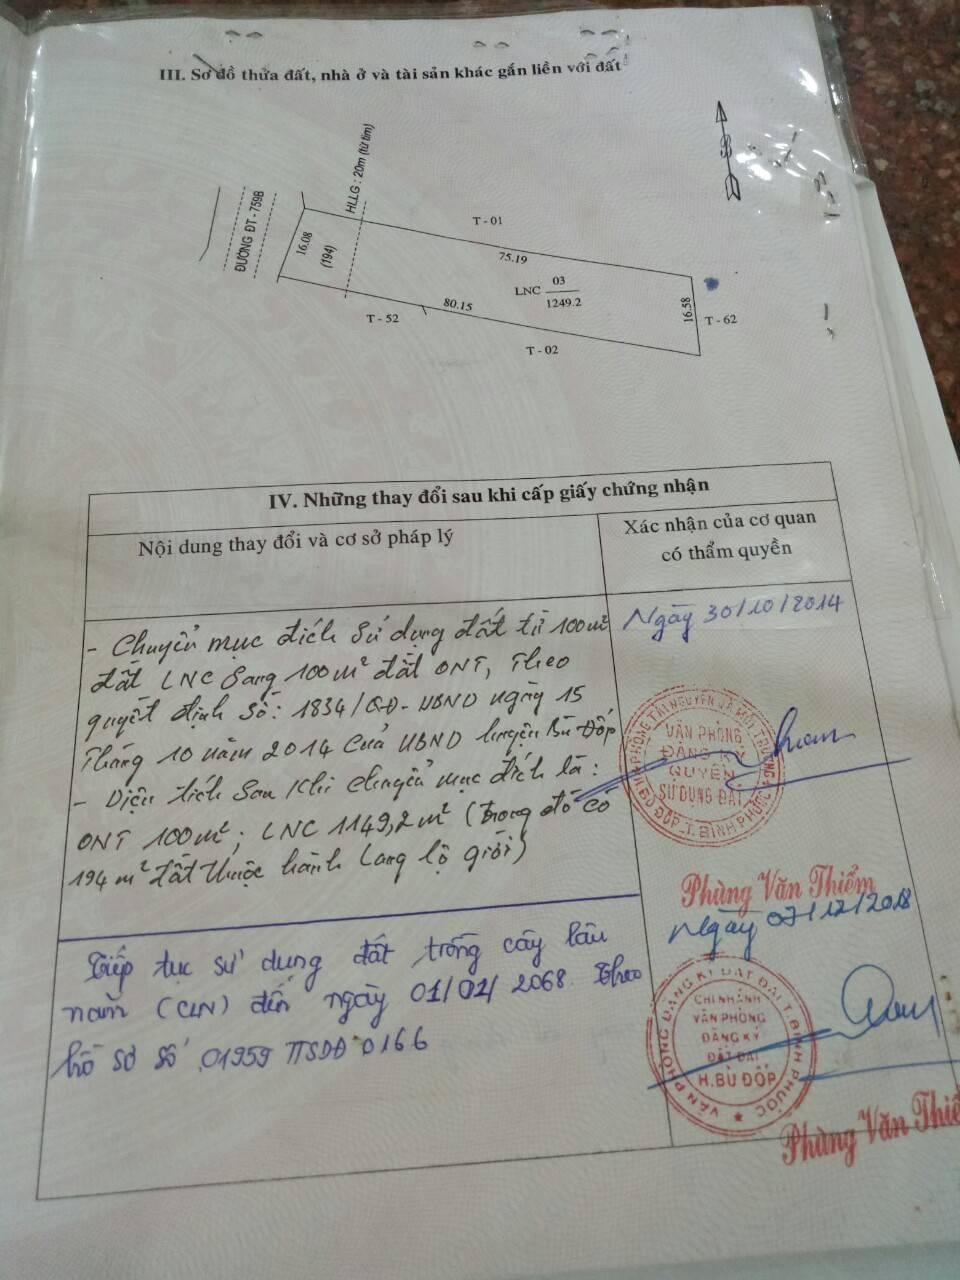 III. Sơ đồ thửa đất, nhà ở và tài sản khác gắn liền với đất
ĐƯỜNG ĐT - 759B
HLLG : 20m (từ tim)
16.08
(194)
T - 01
75.19
LNC 03
1249.2
80.15
T - 52
T - 02
16.58
T - 62
IV. Những thay đổi sau khi cấp giấy chứng nhận
Nội dung thay đổi và cơ sở pháp lý
Xác nhận của cơ quan
có thẩm quyền
- Chuyển mục đích sử dụng đất từ 100m²
đất LNC sang 100m² đất ONT, Theo
quyết định số: 1834/QĐ-UBND ngày 15
Tháng 10 năm 2014 của UBND huyện Bù Đốp
- Diện tích sau khi chuyển mục đích là:
ONT 100m²; LNC 1149,2m² (trong đó có
194m² đất thuộc hành lang lộ giới)
Ngày 30/10/2014
VĂN PHÒNG
ĐĂNG KÝ
QUYỀN
SỬ DỤNG ĐẤT
PHÒNG TÀI NGUYÊN VÀ MÔI TRƯỜNG
H.BÙ ĐỐP.T.BÌNH PHƯỚC
Phùng Văn Thiểm
Tiếp tục sử dụng đất trồng cây lâu
năm (CLN) đến ngày 01/01/2068 theo
hồ sơ số 01959 TTSDĐ 0166
Ngày 07/12/2018
VĂN PHÒNG ĐĂNG KÍ ĐẤT ĐAI T.BÌNH PHƯỚC
CHI NHÁNH
VĂN PHÒNG
ĐĂNG KÝ
ĐẤT ĐAI
H.BÙ ĐỐP
Phùng Văn Thiể